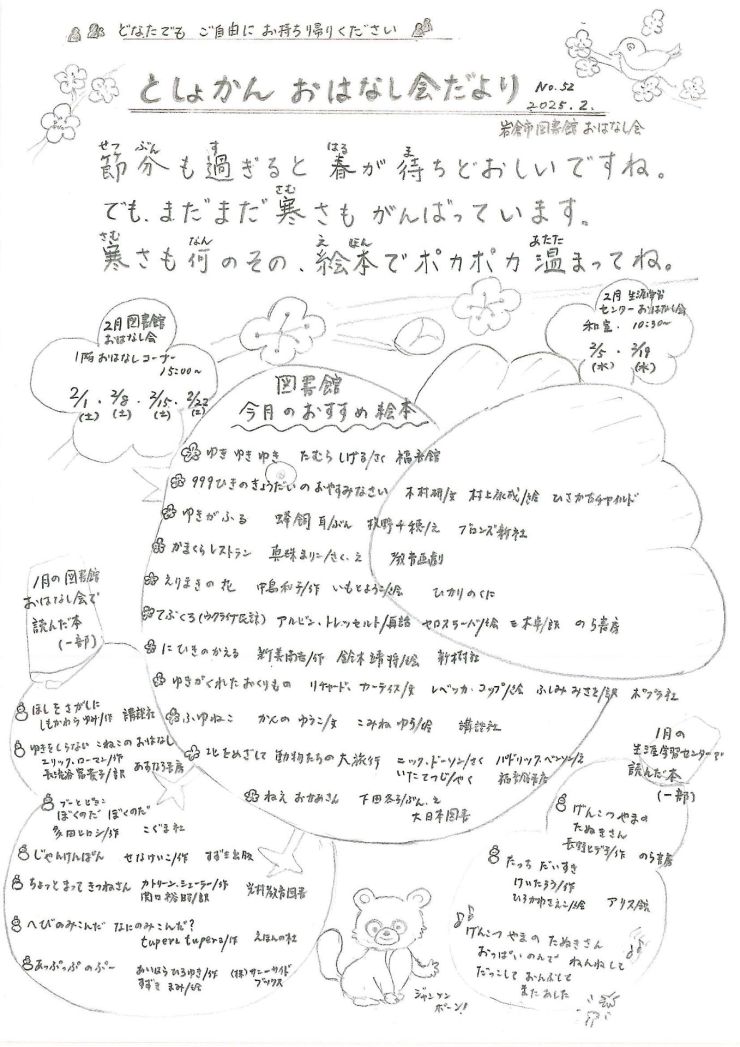 どなたでも ご自由に お持ち帰りください
としょかん おはなし会だより No.52
2025.2.
岩倉市図書館 おはなし会
節分も過ぎると春が待ちどおしいですね。
でも、まだまだ寒さもがんばっています。
寒さも何のその、絵本でポカポカ温まってね。
2月図書館
おはなし会
1階おはなしコーナー
15:00〜
2/1・2/8・2/15・2/22
(土) (土) (土) (土)
2月 生涯学習
センターおはなし会
和室・10:30〜
2/5・2/19
(水) (水)
図書館
今月のおすすめ絵本
ゆき ゆき ゆき たむら しげる/さく 福音館
999ひきのきょうだいのおやすみなさい 木村研/文 村上康成/絵 ひさかたチャイルド
ゆきがふる 蜂飼 耳/ぶん 牧野千穂/え ブロンズ新社
かまくらレストラン 真珠まりこ/さく、え 教育画劇
えりまきの花 中島和子/作 いもとようこ/絵 ひかりのくに
てぶくろ(ウクライナ民話) アルビン、トレッセルト/再話 ヤロスラーバ/絵 三木卓/訳 のら書房
にひきのかえる 新美南吉/作 鈴木靖将/絵 新樹社
ゆきがくれたおくりもの リチャード、カーティス/文 レベッカ・コッブ/絵 ふしみ みさを/訳 ポプラ社
ふゆねこ かんの ゆうこ/文 こみね ゆら/絵 講談社
北をめざして 動物たちの大旅行 ニック、ドーソン/さく パトリック、ベンソン/え
いだてつじ/やく 福音館書店
ねえ おかあさん 下田冬子/ぶん、え
大日本図書
1月の図書館
おはなし会で
読んだ本
(一部)
ほしをさがしに
しもかわら ゆみ/作 講談社
ゆきをしらない こねこのおはなし
エリック、ローマン/作
長滝谷富貴子/訳 あすなろ書房
ブーとぴょこ
ぼくのだ ぼくのだ
多田ヒロシ/作 こぐま社
じゃんけんぽん せなけいこ/作 すずき出版
ちょっとまって きつねさん カトリーン、シェーラー/作 光村教育図書
関口裕昭/訳
へびのみこんだ なにのみこんだ?
tupera tupera/作 えほんの杜
あっぷっぷ のぷー あいはらひろゆき/作 (株)サニーサイド
すずき まみ/絵 ブックス
1月の
生涯学習センターで
読んだ本
(一部)
げんこつやまの
たぬきさん
長野ヒデ子/作 のら書房
たっち だいすき
けいたろう/作
ひろかわさえこ/絵 アリス館
げんこつ やまの たぬきさん
おっぱいのんで ねんねして
だっこして おんぶして
またあした
ジャンケン
ポーン!